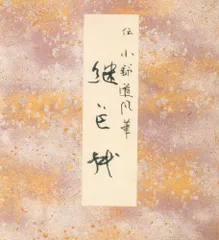 伝 小野道風筆
継色紙